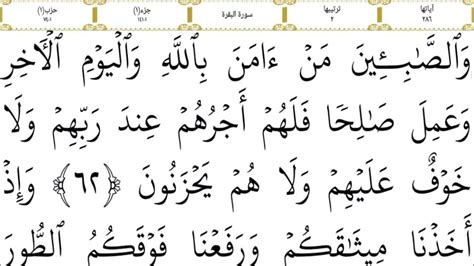 آياتها ترتيبها سورة البقرة جزء(١) حزب(١)
٢٨٦ ٢
وَٱلصَّـٰبِـِٔينَ مَنْ ءَامَنَ بِٱللَّهِ وَٱلْيَوْمِ ٱلْـَٔاخِرِ
وَعَمِلَ صَـٰلِحًا فَلَهُمْ أَجْرُهُمْ عِندَ رَبِّهِمْ وَلَا
خَوْفٌ عَلَيْهِمْ وَلَا هُمْ يَحْزَنُونَ ﴿٦٢﴾ وَإِذْ
أَخَذْنَا مِيثَـٰقَكُمْ وَرَفَعْنَا فَوْقَكُمُ ٱلطُّورَ